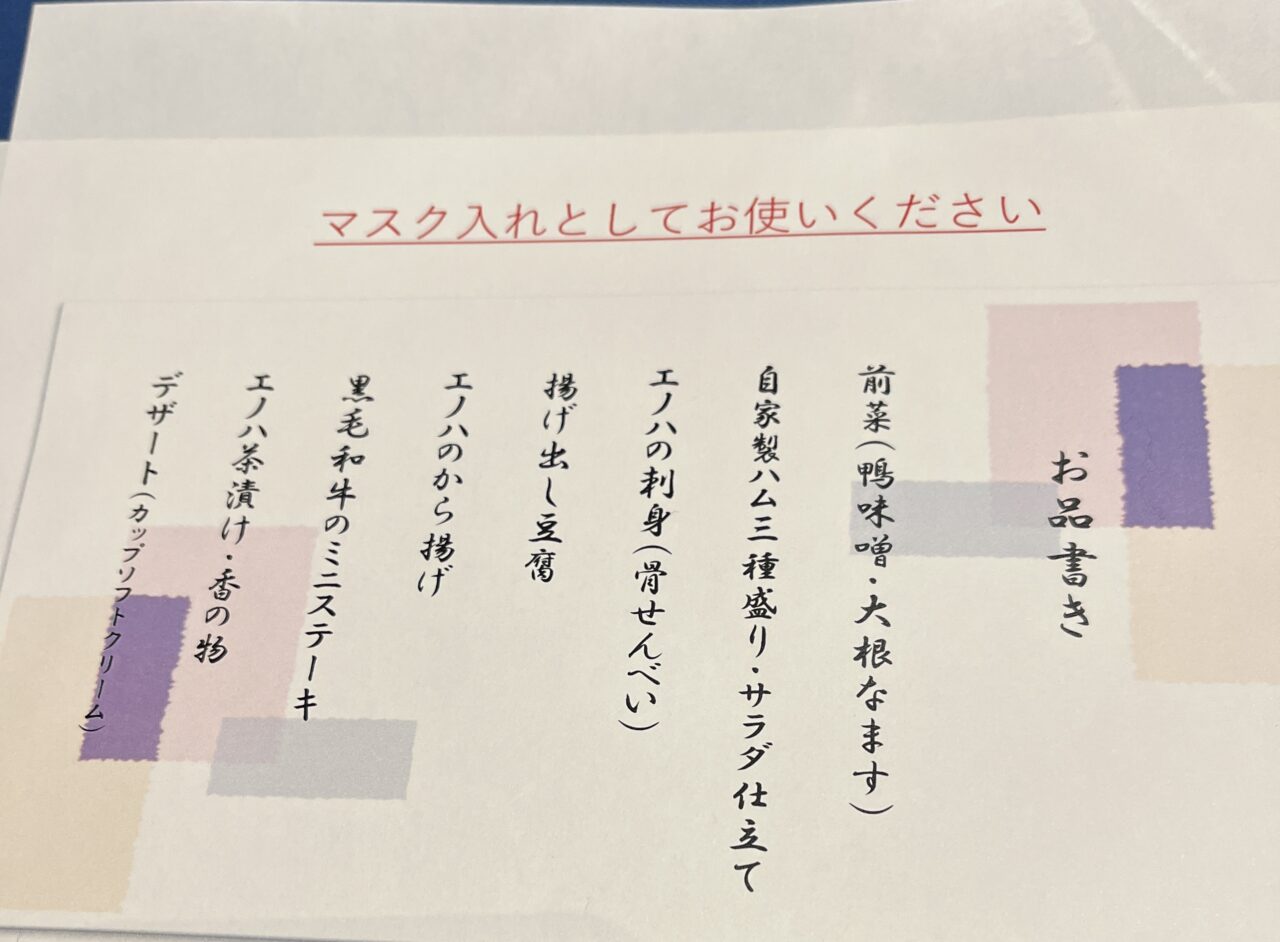 マスク入れとしてお使いください
お品書き
前菜(鴨味噌・大根なます)
自家製ハム三種盛り・サラダ仕立て
エノハの刺身(骨せんべい)
揚げ出し豆腐
エノハのから揚げ
黒毛和牛のミニステーキ
エノハ茶漬け・香の物
デザート(カップソフトクリーム)